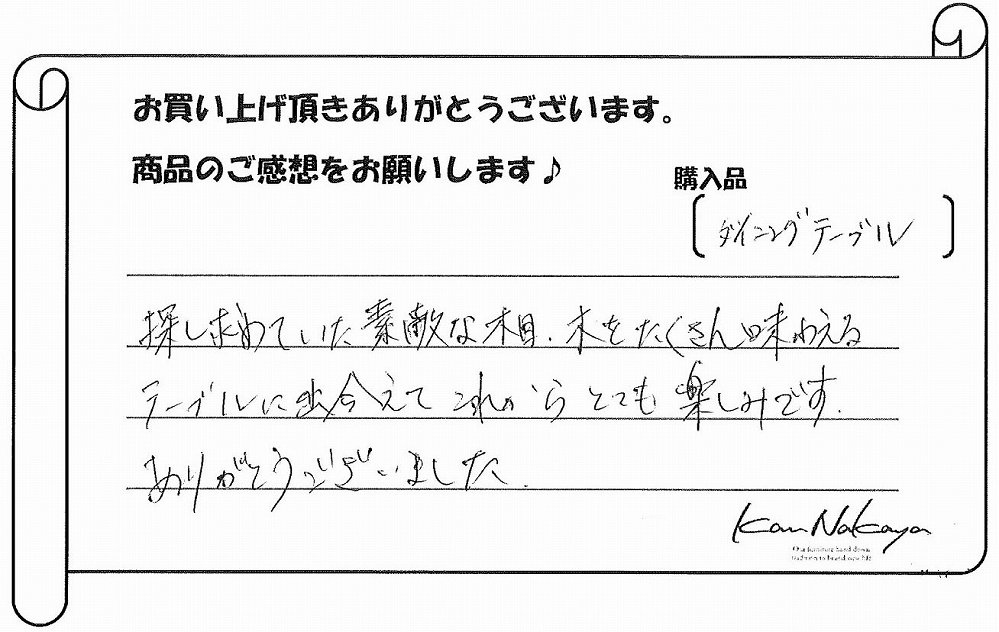 お買い上げ頂きありがとうございます。
商品のご感想をお願いします♪
購入品
ダイニングテーブル
探し求めていた素敵な木目、木をたくさん味わえる
テーブルに出会えてこれからとても楽しみです。
ありがとうございました。
Kan Nakaya
Our furniture hand down